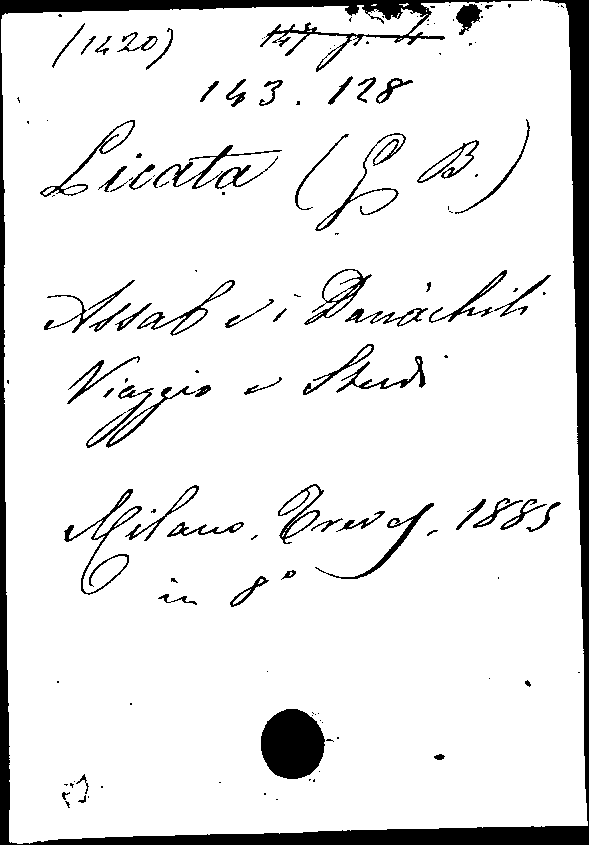 (1420) 147 gr. 4
143.128
Licata (G B.)
Assab e i Danàchili
Viaggio e Studi
Milano, Treves, 1885
in 8º